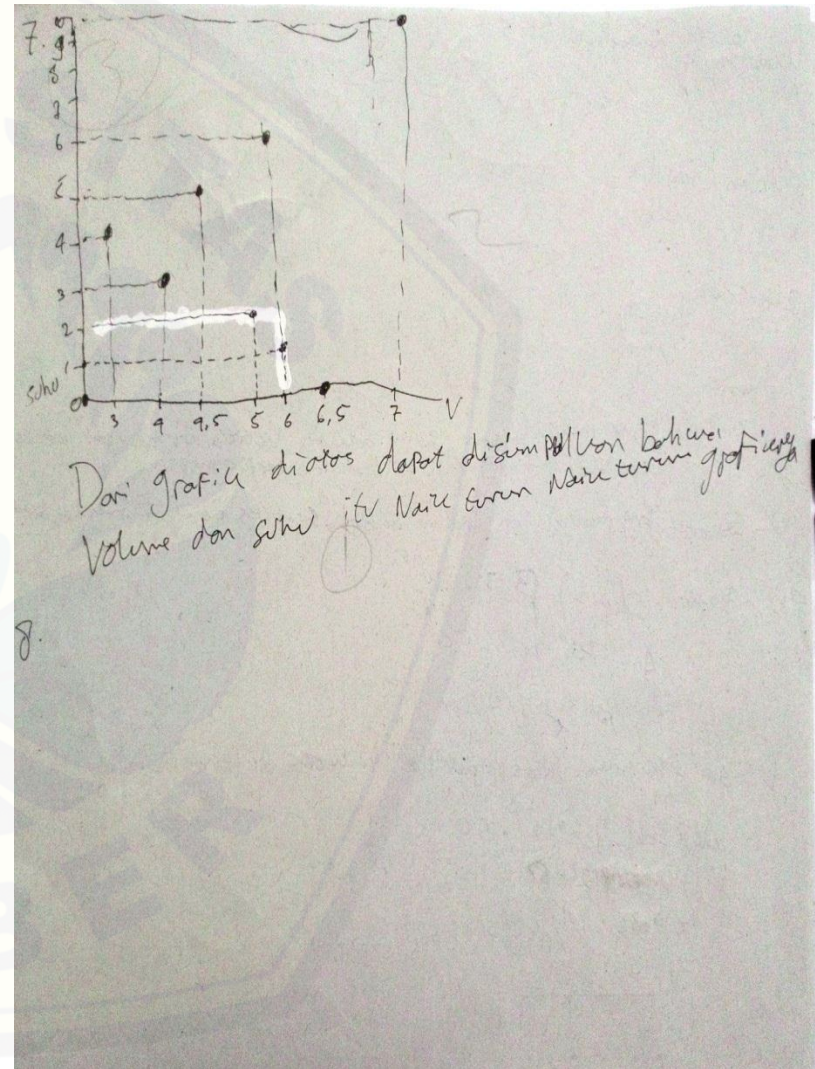 7.
6
5
4
3
2
1
suhu
0
3 4 4,5 5 6 6,5 7 V
Dari grafik diatas dapat disimpulkan bahwa
Volume dan suhu itu Naik turun Naik turun grafiknya
1
8.